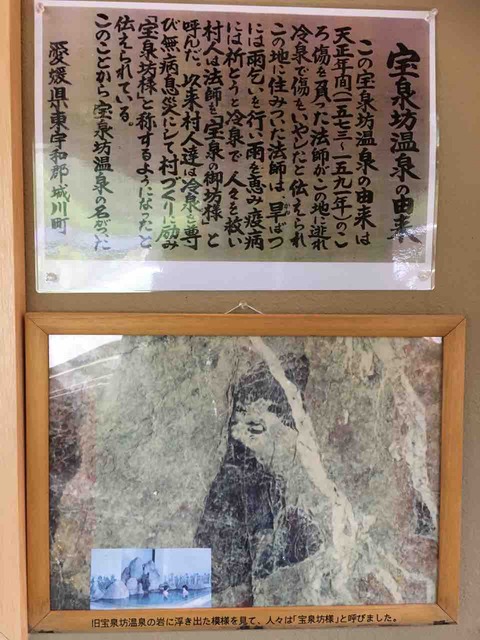 宝泉坊温泉の由来
この宝泉坊温泉の由来は
天正年間(一五七三〜一五九一年)のこ
ろ傷を負った法師がこの地に逃れ
冷泉で傷をいやしたと伝えられ
この地に住みついた法師は、早ばつ
には雨乞いを行い雨を恵み疫病
には祈とうと冷泉で、人々を救い
村人は法師を「宝泉の御坊様」と
呼んだ。以来村人達は冷泉を尊
び無病息災にして村づくりに励み
「宝泉坊様」と称するようになったと
伝えられている。
このことから宝泉坊温泉の名がついた
愛媛県東宇和郡城川町
旧宝泉坊温泉の岩に浮き出た模様を見て、人々は「宝泉坊様」と呼びました。